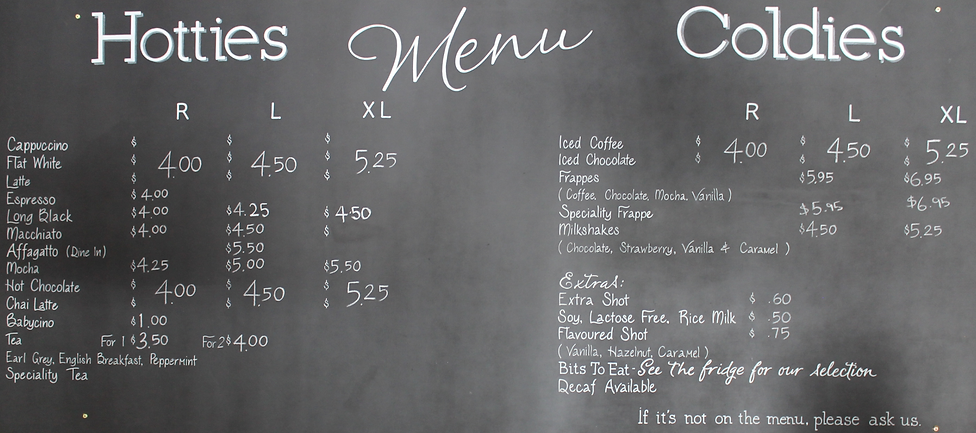 Hotties Menu Coldies
R L XL
Cappuccino $ $ $
Flat White $ 4.00 $ 4.50 $ 5.25
Latte $ $ $
Espresso $ 4.00
Long Black $4.00 $4.25 $ 4.50
Macchiato $4.00 $4.50 $
Affagatto (Dine In) $5.50
Mocha $4.25 $5.00 $5.50
Hot Chocolate $ 4.00 $ 4.50 $ 5.25
Chai Latte $ $ $
Babycino $1.00
Tea For 1 $3.50 For 2 $4.00
Earl Grey, English Breakfast, Peppermint
Speciality Tea
R L XL
Iced Coffee $ 4.00 $ 4.50 $ 5.25
Iced Chocolate $ $ $
Frappes $5.95 $6.95
(Coffee, Chocolate, Mocha, Vanilla)
Speciality Frappe $5.95 $6.95
Milkshakes $4.50 $5.25
(Chocolate, Strawberry, Vanilla & Caramel)
Extras:
Extra Shot $ .60
Soy, Lactose Free, Rice Milk $ .50
Flavoured Shot $ .75
(Vanilla, Hazelnut, Caramel)
Bits To Eat - See The fridge for our selection
Decaf Available
If it's not on the menu, please ask us.